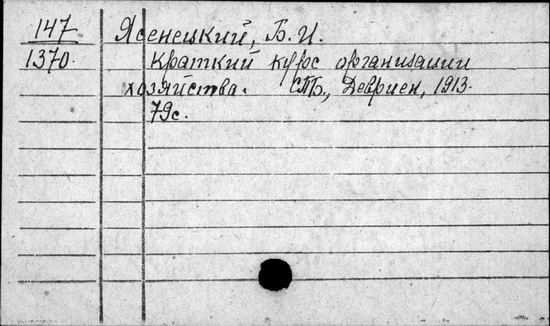 147 Ясенецкий, Б. И.
1370. Краткий курс организации
хозяйства. СПб., Девриен, 1913.
79с.